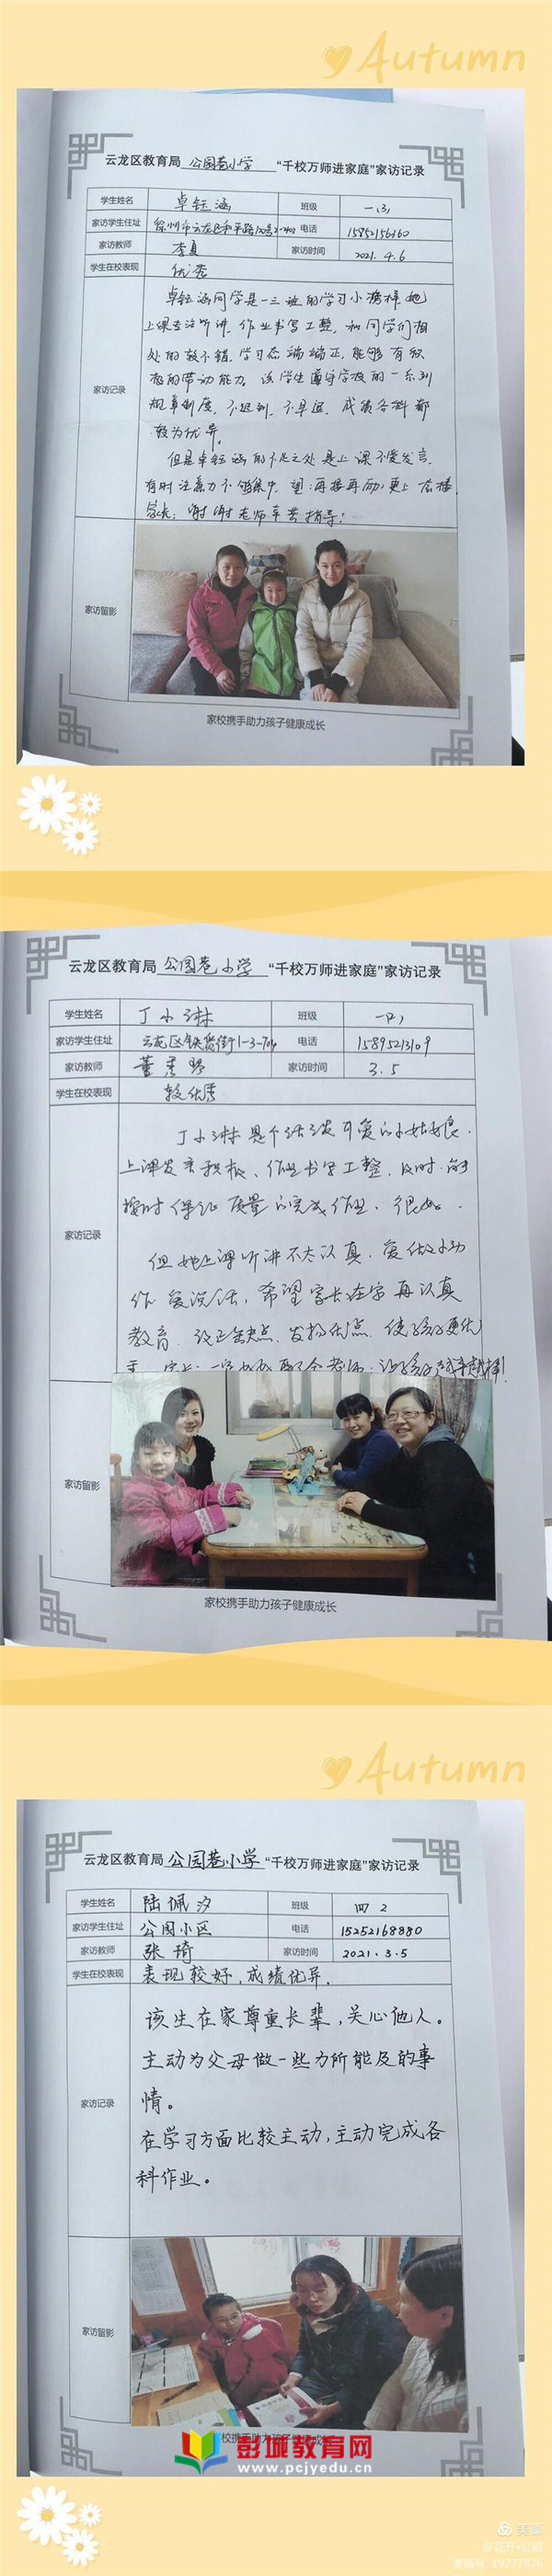 Autumn
云龙区教育局 公园巷小学 “千校万师进家庭”家访记录
学生姓名 卓钰涵 班级 一、(3)
家访学生住址 徐州市云龙区和平路 电话 15852156360
家访教师 李真 家访时间 2021.4.6
学生在校表现 优秀
家访记录
卓钰涵同学是一三班的学习小榜样,她
上课专注听讲,作业书写工整,和同学们相
处的较不错,学习态端端正,能够有积
极的带动能力,该学生遵守学校的一系列
规章制度,不迟到、不早退,成绩各科都
较为优异。
但是卓钰涵的不足之处是上课不爱发言,
有时注意力不够集中,望:再接再励,更上层楼
家长:谢谢老师辛苦指导!
家访留影
家校携手助力孩子健康成长
云龙区教育局 公园巷小学 “千校万师进家庭”家访记录
学生姓名 丁小琳 班级
家访学生住址 云龙区铁货街1-3-704 电话 15895213109
家访教师 董秀琴 家访时间 3.5
学生在校表现 较优秀
丁小琳是个活泼可爱的小姑娘,
上课发言积极、作业书写工整,及时,能
按时保证质量的完成作业,很好.
家访记录
但她上课听讲不太认真,爱做小动
作爱说话,希望家长在家再认真
教育,改正缺点,发扬优点,使孩子更优
秀
家访留影
家校携手助力孩子健康成长
Autumn
云龙区教育局 公园巷小学 “千校万师进家庭”家访记录
学生姓名 陆佩汐 班级 四2
家访学生住址 公园小区 电话 15252168880
家访教师 张琦 家访时间 2021.3.5
学生在校表现 表现较好,成绩优异.
该生在家尊重长辈,关心他人。
主动为父母做一些力所能及的事
家访记录 情。
在学习方面比较主动,主动完成各
科作业。
家访留影
校携手助力孩子健康成长
彭城教育网
www.pcjyedu.cn
美篇
美篇号 19277826